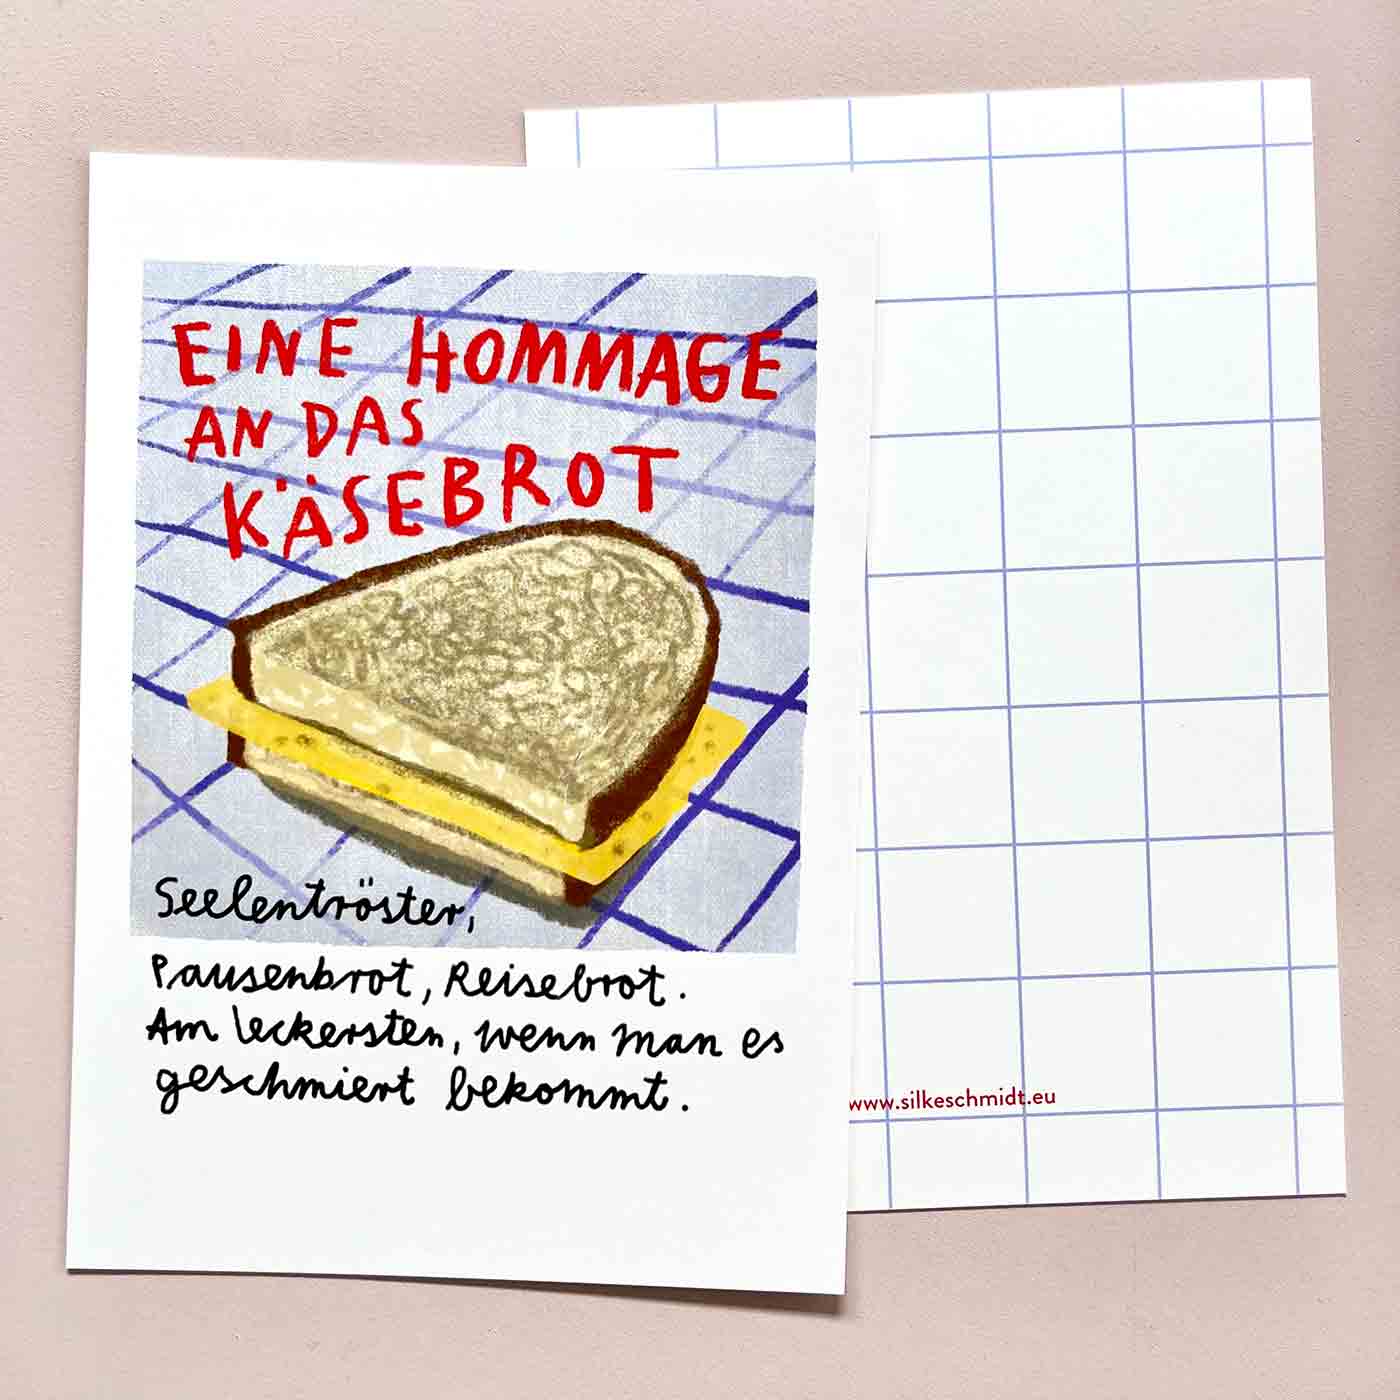 EINE HOMMAGE
AN DAS
KÄSEBROT
Seelentröster,
Pausenbrot, Reisebrot.
Am leckersten, wenn man es
geschmiert bekommt.
www.silkeschmidt.eu